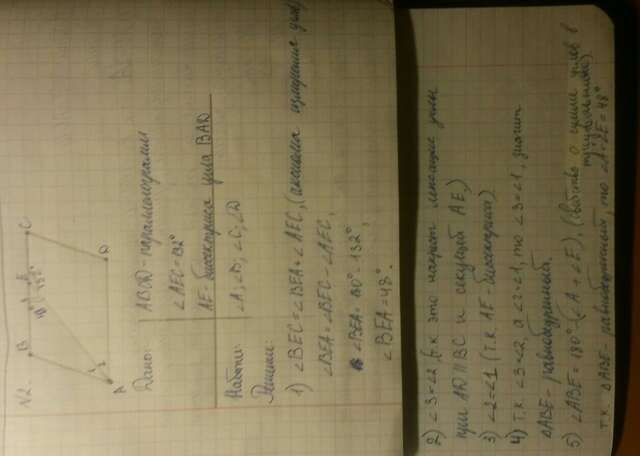 N2.
B E C
132°
A D
Дано: ABCD - параллелограмм
∠AEC = 132°
AE - биссектриса угла BAD
Найти: ∠A, ∠B, ∠C, ∠D
Решение:
1) ∠BEC = ∠BEA + ∠AEC, (аксиома измерения углов)
∠BEA = ∠BEC - ∠AEC,
∠BEA = 180° - 132°,
∠BEA = 48°.
2) ∠3 = ∠2 (т.к это накрест лежащие углы
при AD || BC и секущей AE,)
3) ∠2 = ∠1 (т.к AE - биссектриса)
4) т.к ∠3 = ∠2, а ∠2 = ∠1, то ∠3 = ∠1, значит
∆ABE - равнобедренный.
5) ∠ABE = 180° - (∠A + ∠E), (свойство о сумме углов в
треугольнике).
т.к ∆ABE - равнобедренный, то ∠A = ∠E = 48°